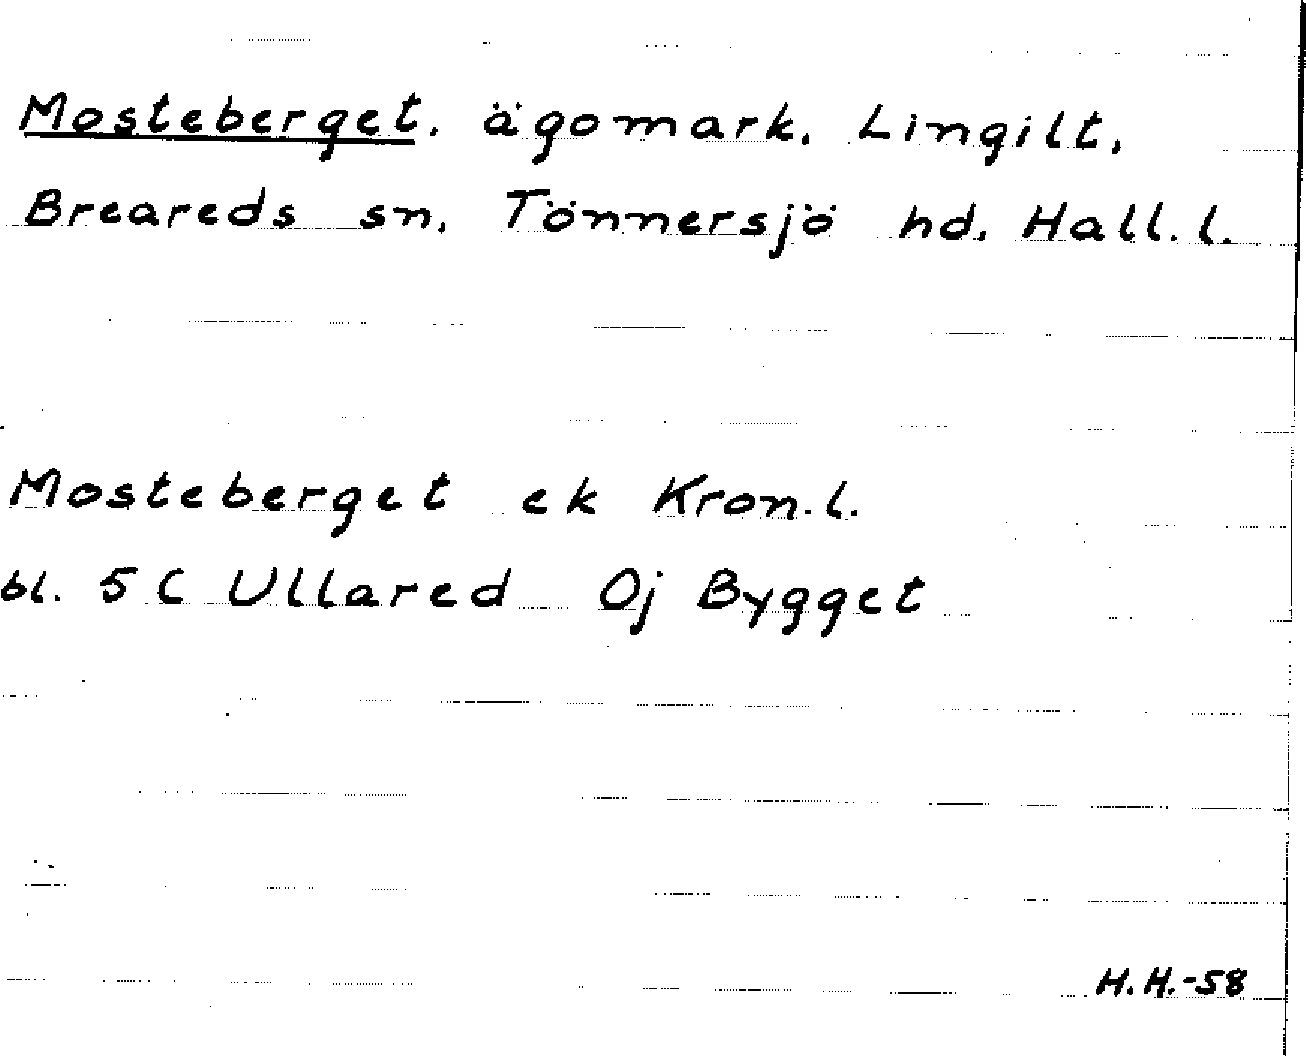 Mosteberget, ägomark, Lingilt,
Breareds sn, Tönnersjö hd, Hall. l.
Mosteberget ek Kron. l.
bl. 5 C Ullared Oj Bygget
H. H.-58